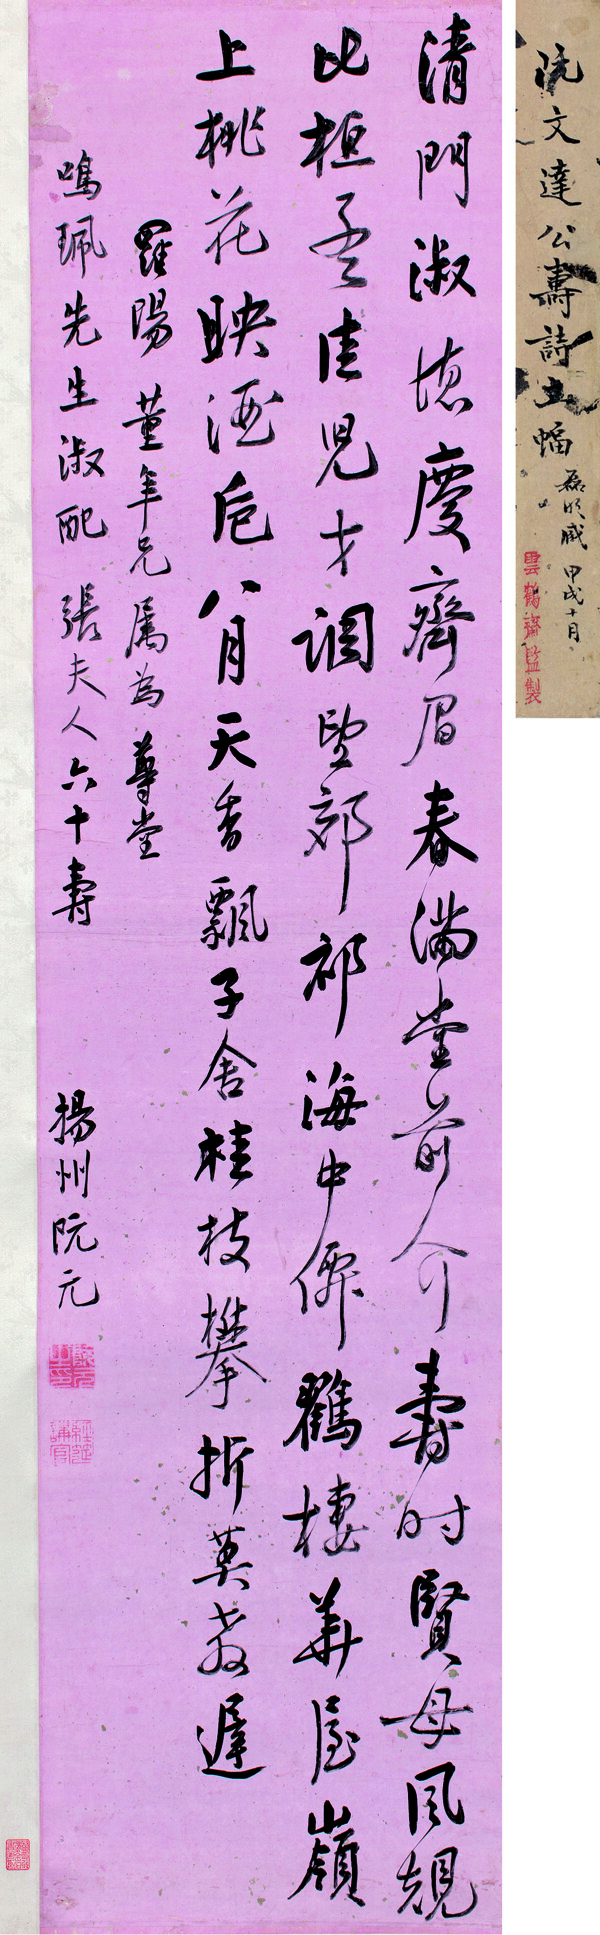 清門淑德慶齊眉春滿堂前人介壽時賢母風規
比桓孟佳兒才調望郊祁海中僊鶴棲華屋嶺
上桃花映酒卮八月天香飄子舍桂枝攀折莫教遲
羅陽董年兄屬為尊堂
鳴珮先生淑配張夫人六十壽
揚州阮元
阮元之印
經筵講官
阮文達公壽詩立幅
甲戌十月
雲鶴齋監製